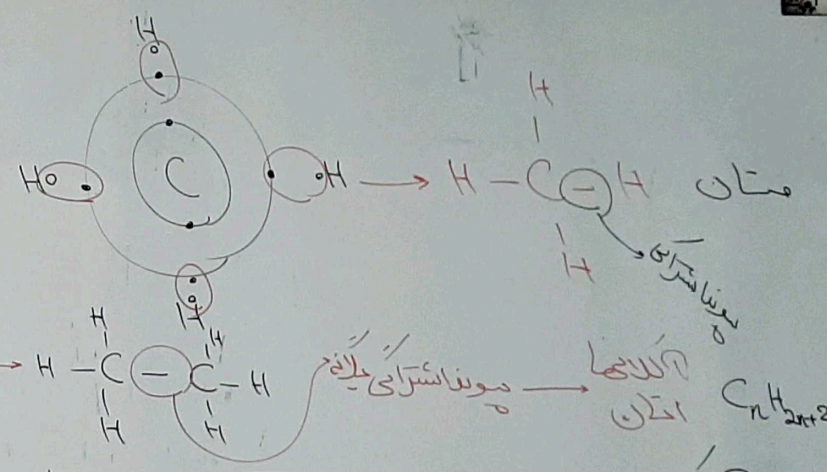 H
H C H → H – C – H متان
H
H
H
پیوند اشتراکی
H
H
→ H – C – C – H پیوند اشتراکی یگانه → آلکانها
اتان
CnH2n+2
H
H